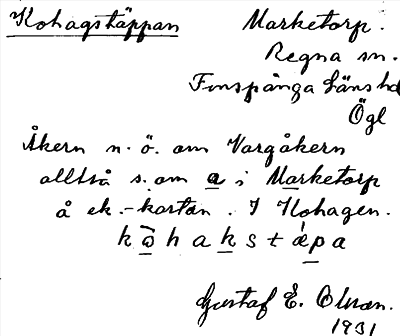 Kohagstäppan Marketorp.
Regna sn.
Finspånga läns hd
Ögl
Åkern n. ö. om Vargåkern
alltså s. om a i Marketorp
å ek.-kartan. I Kohagen.
k ω̄ h a k s t ǽ p a
Gustaf E. Olsson.
1931